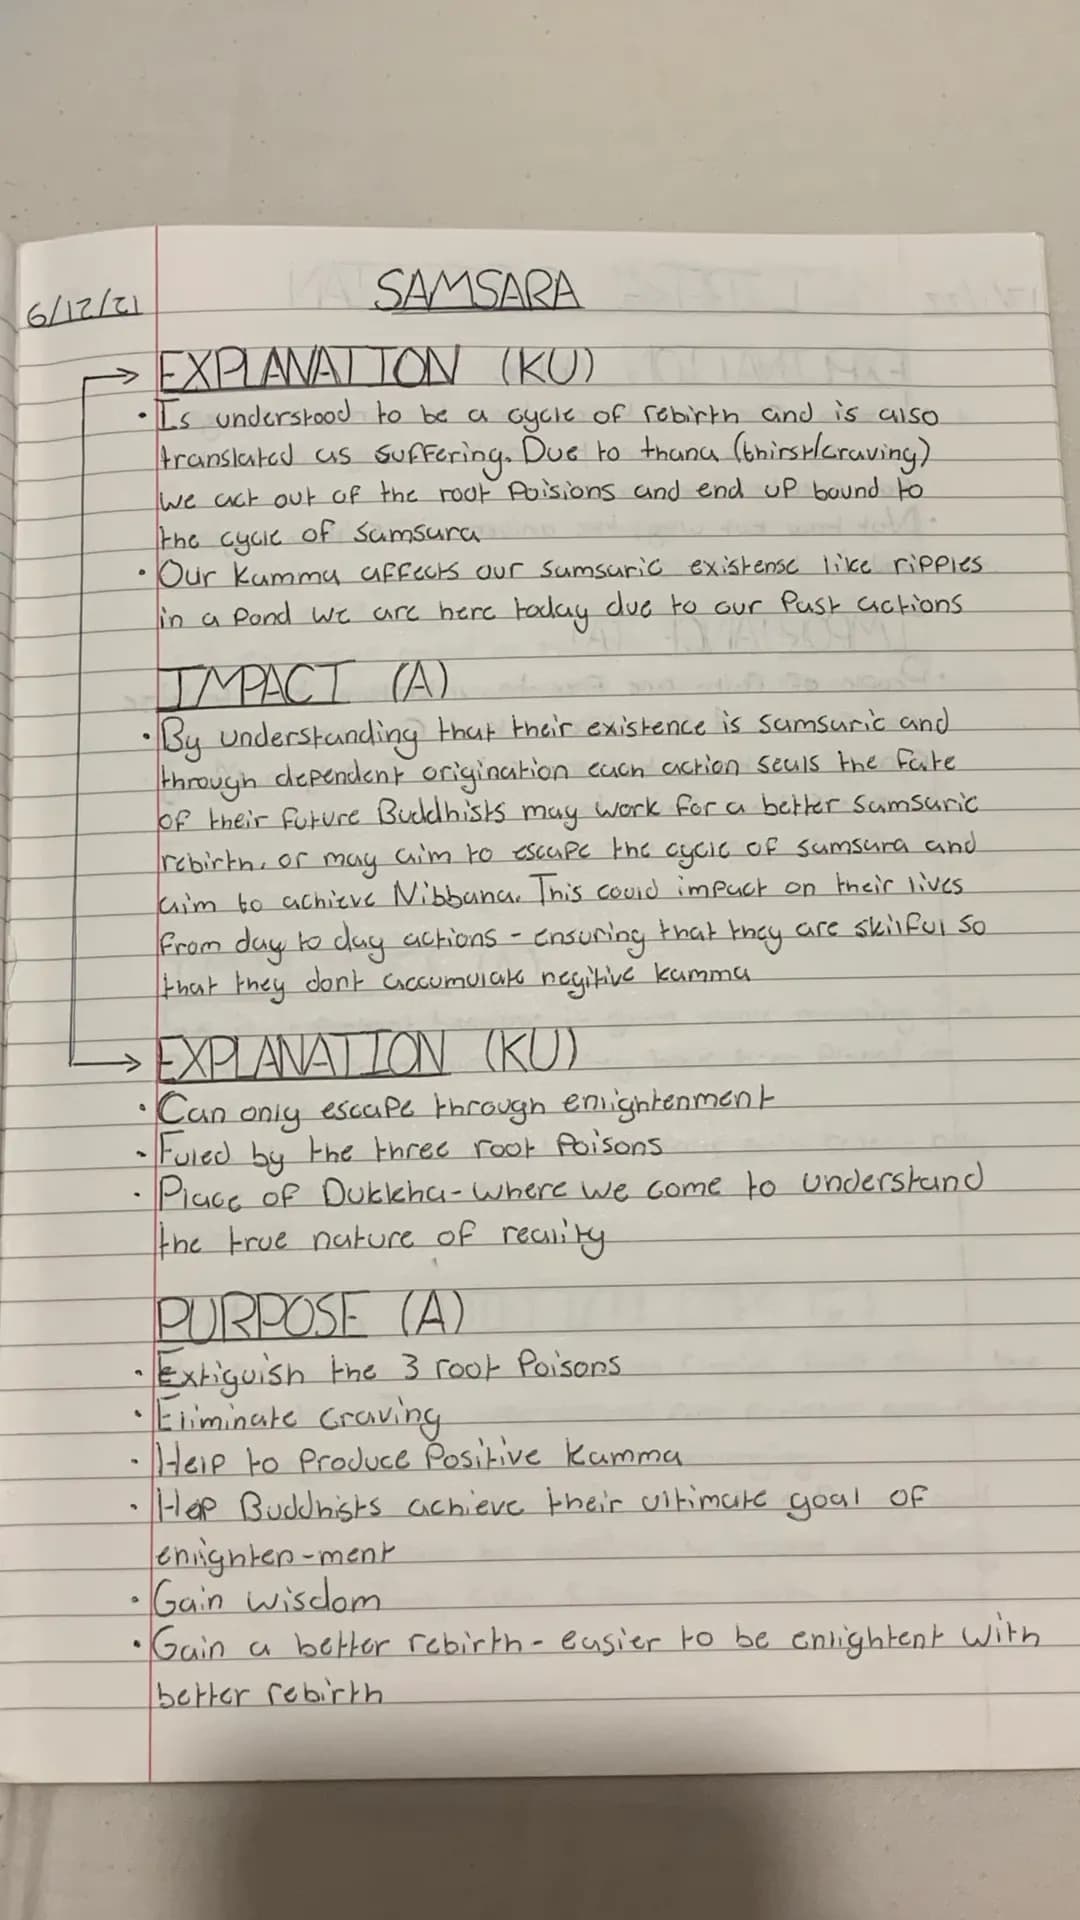 SAMSARA
6/12/21
EXPLANATION (KU)
• Is understood to be a cycle of rebirth and is also
translated as suffering. Due to thana (thirst/craving)
we act out of the root Poisions and end up bound to
the cycle of Samsara
• Our Kamma affects our samsaric existense like ripples
in a Pond we are here today due to our Past actions
IMPACT (A)
• By understanding that their existence is samsaric and
through dependent origination each action seals the fate
of their future Buddhists may work for a better Samsaric
rebirth, or may aim to escape the cycle of samsara and
aim to achieve Nibbana. This could impact on their lives
from day to day actions - ensuring that they are skilful so
that they dont accumulate negitive kamma
EXPLANATION (KU)
• Can only escape through enlightenment
• Fuled by the three root Poisons
• Place of Dukkha - where we come to understand
the true nature of reality
PURPOSE (A)
• Extiguish the 3 root Poisons
• Eliminate craving
• Help to Produce Positive Kamma
• Hep Buddhists achieve their ultimate goal of
enlighten-ment
• Gain wisdom
• Gain a better rebirth - easier to be enlightent with
better rebirth